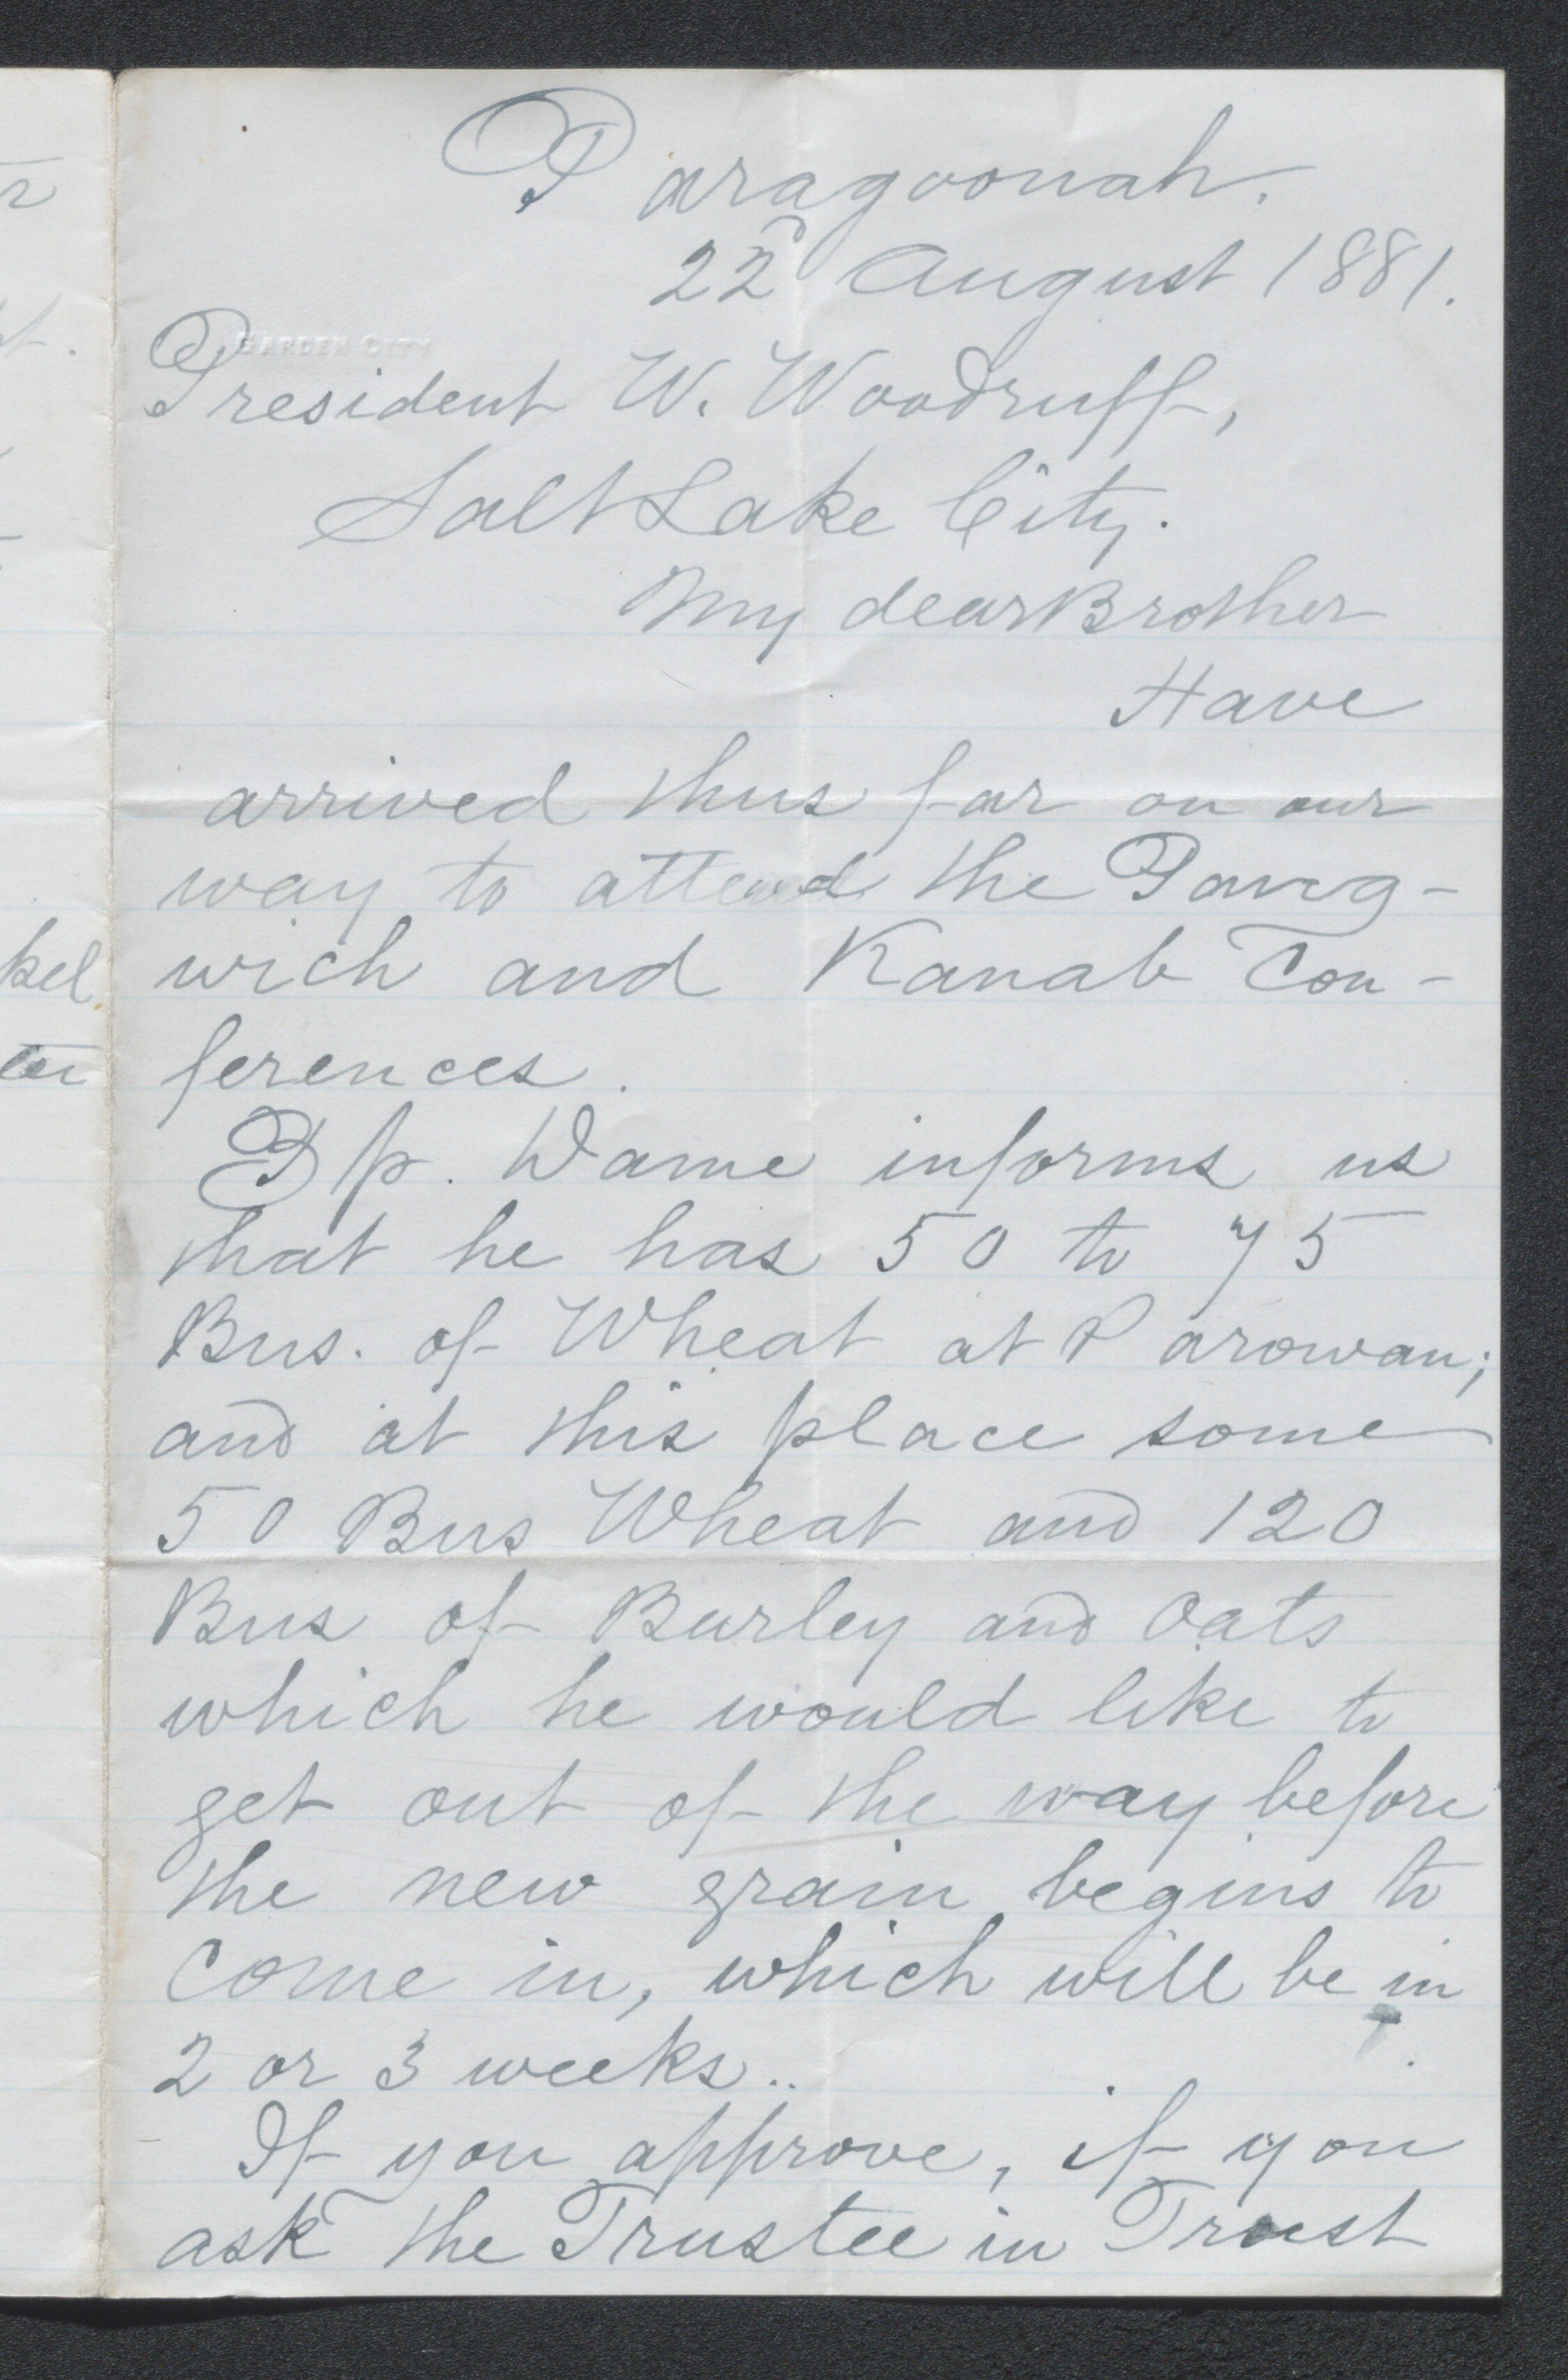 Paragoonah.
22d August 1881.
GARDEN CITY
President W. Woodruff,
Salt Lake City.
My dear Brother
Have
arrived thus far on our
way to attend the Pang-
wich and Kanab Con-
ferences.
Bp. Dame informs us
that he has 50 to 75
Bus. of Wheat at Parowan;
and at this place some
50 Bus Wheat and 120
Bus of Barley and Oats
which he would like to
get out of the way before
the new grain begins to
come in, which will be in
2 or 3 weeks..
If you approve, if you
ask the Trustee in Trust